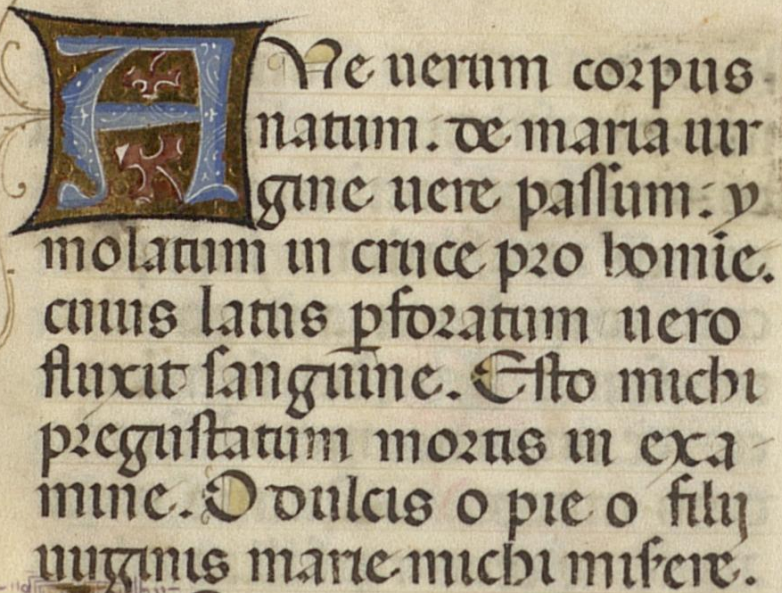 Aue uerum corpus
natum. de maria uir
gine uere passum: y
molatum in cruce pro homīe.
cuius latus ꝑforatum uero
fluxit sanguine. Esto michi
pregustatum mortis in exa
mine. O dulcis o pie o filij
uirginis marie michi misere.